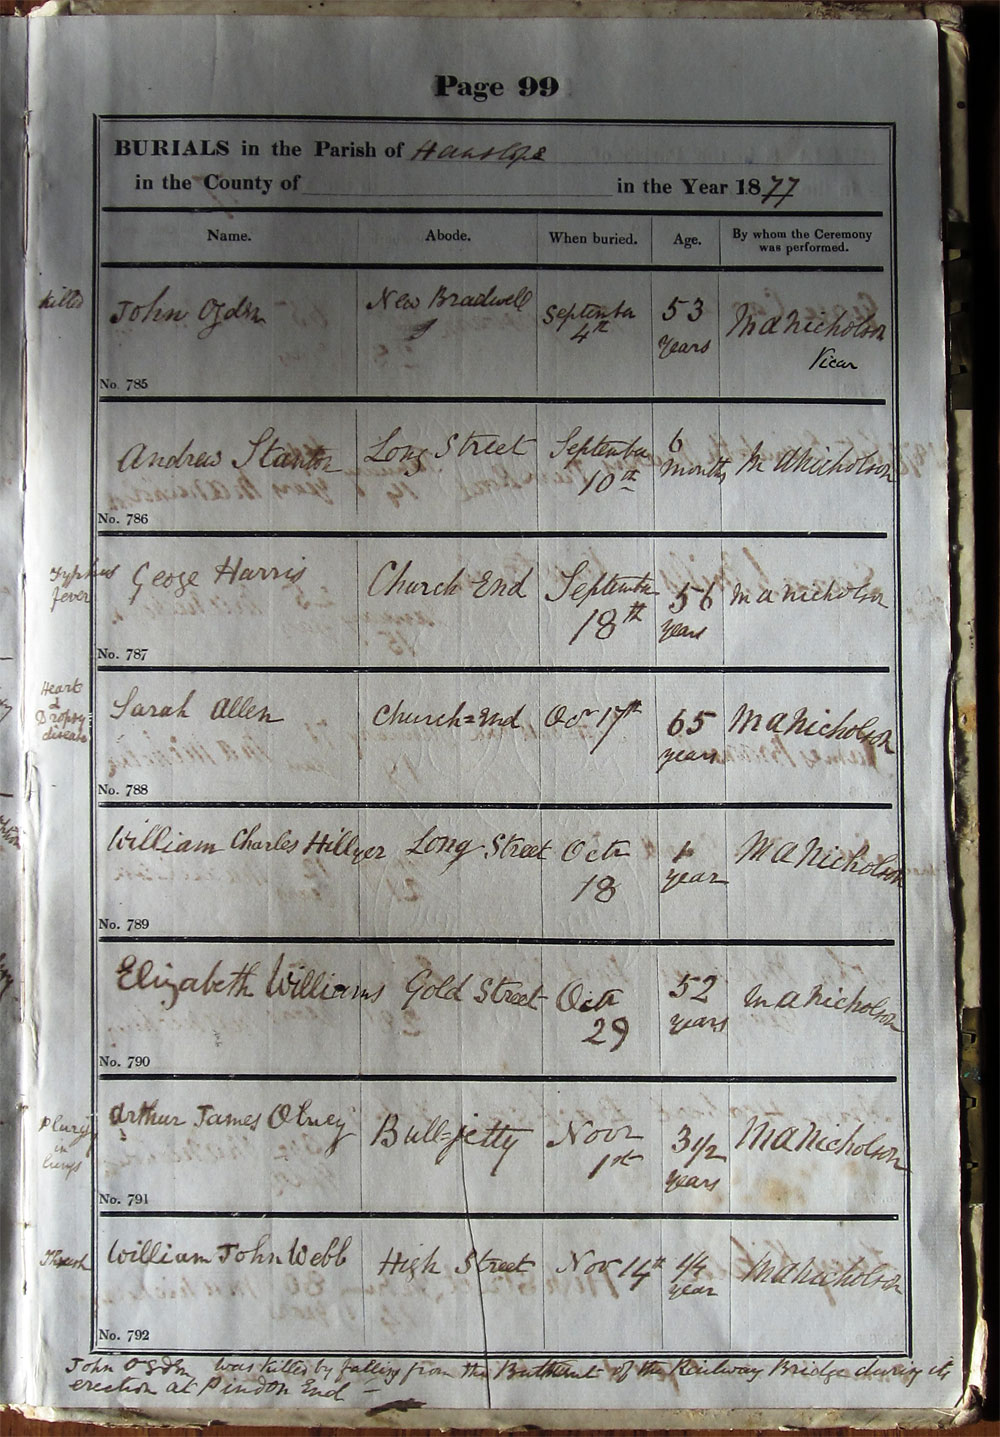 Page 99
BURIALS in the Parish of Hanslope
in the County of in the Year 1877
Name. Abode. When buried. Age. By whom the Ceremony was performed.
killed John Ogden New Bradwell September 4th 53 years M A Nicholson Vicar
No. 785
Andrew Stanton Long Street September 10th 6 months M A Nicholson
No. 786
Typhus fever Geoge Harris Church End September 18th 56 years M A Nicholson
No. 787
Heart & Dropsy= disease Sarah Allen Church=End Octr 17th 65 years M A Nicholson
No. 788
William Charles Hillyer Long Street Octr 18 1 year M A Nicholson
No. 789
Elizabeth Williams Gold Street Octr 29 52 years M A Nicholson
No. 790
Plurisy in lungs Arthur James Olney Bull=jetty Novr 1st 3 1/2 years M A Nicholson
No. 791
Thrush William John Webb High Street Nov 14th 1/4 year M A Nicholson
No. 792
John Ogden was killed by falling from the Buttment of the Railway Bridge during its
erection at Pindon End —